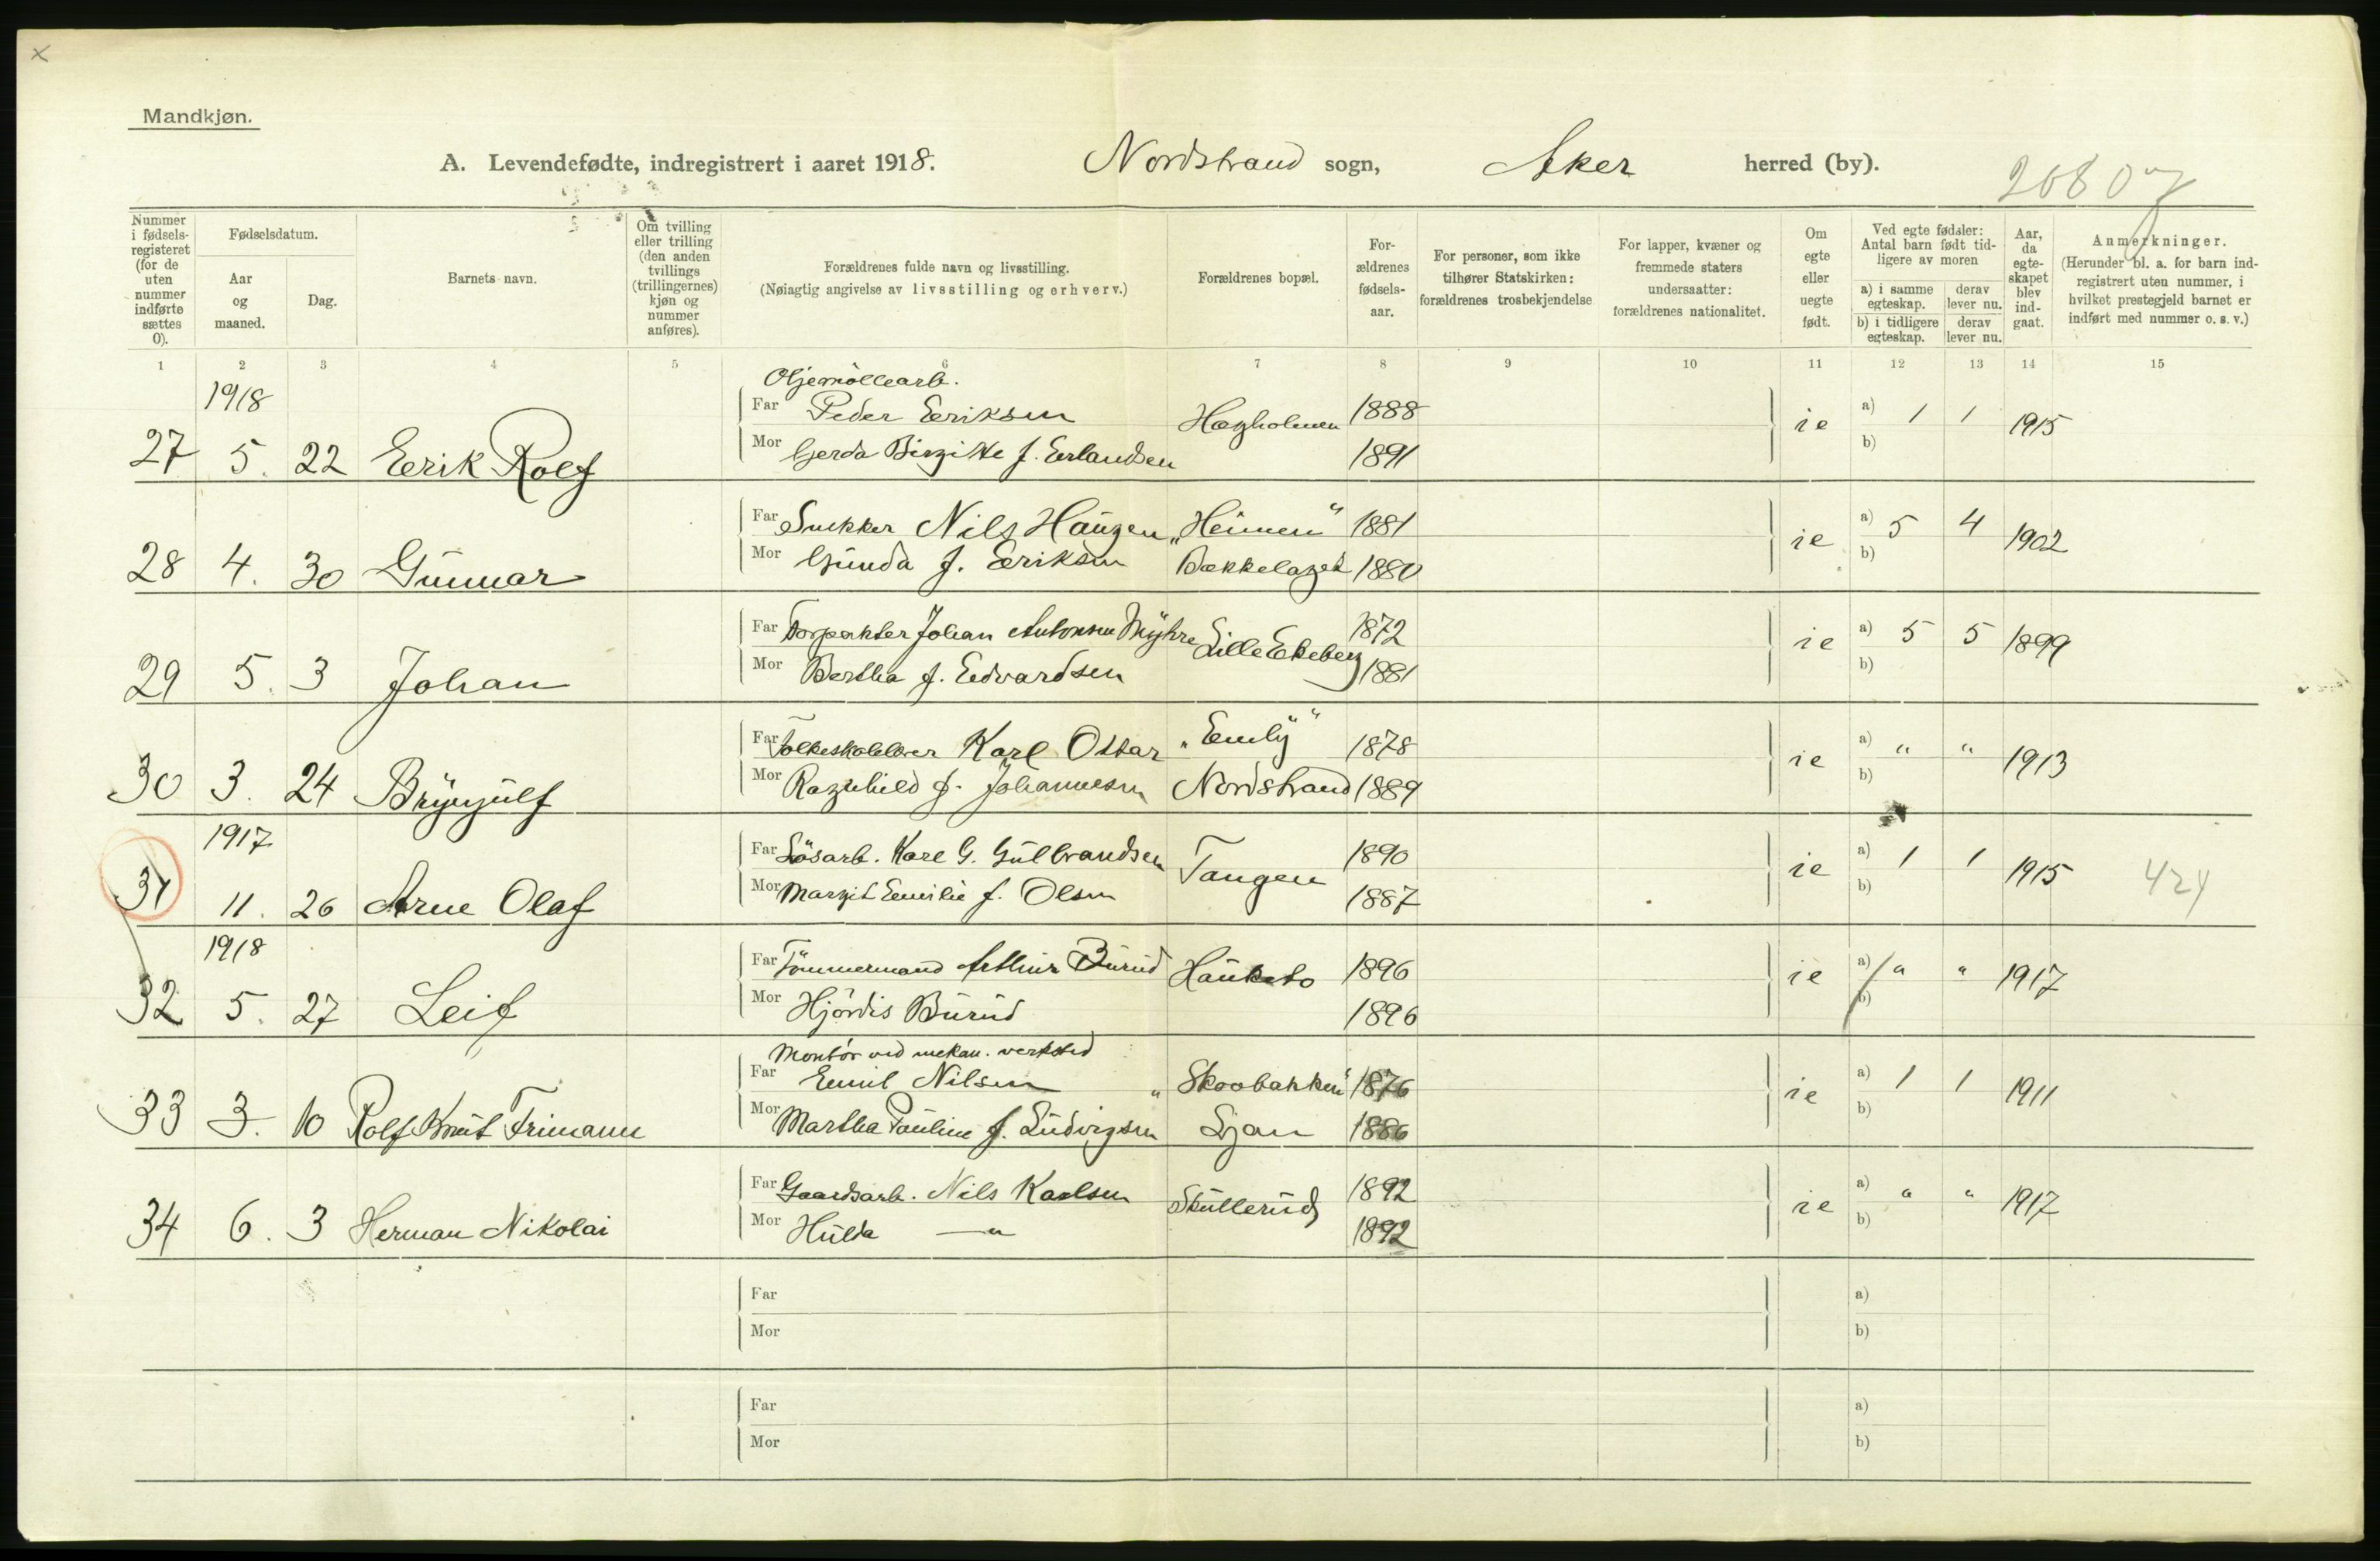 Mandkjøn.
A. Levendefødte, indregistrert i aaret 1918. Nordstrand sogn, Aker herred (by).
Nummer i fødselsregisteret (for de uten nummer indførte sættes 0).
Fødselsdatum.
Aar og maaned.
Dag.
Barnets navn.
Om tvilling eller trilling (den anden tvillings (trillingernes) kjøn og nummer anføres).
Forældrenes fulde navn og livsstilling.
(Nøiagtig angivelse av livsstilling og erhverv.)
Forældrenes bopæl.
Forældrenes fødselsaar.
For personer, som ikke tilhører Statskirken: forældrenes trosbekjendelse
For lapper, kvæner og fremmede staters undersaatter: forældrenes nationalitet.
Om egte eller uegte født.
Ved egte fødsler: Antal barn født tidligere av moren
a) i samme egteskap. derav lever nu.
b) i tidligere egteskap. derav lever nu.
Aar, da egteskapet blev indgaat.
Anmerkninger.
(Herunder bl. a. for barn indregistrert uten nummer, i hvilket prestegjeld barnet er indført med nummer o. s. v.)
1 2 3 4 5 6 7 8 9 10 11 12 13 14 15
1918 Oljemöllearb.
Far Peder Eriksen Hægholmen 1888 a) 1 1
27 5. 22 Erik Rolf ie 1915
Mor Gerda Birgitte f. Erlandsen 1891 b)
Far Snekker Nils Haugen „Heimen" 1881 a) 5 4
28 4. 30 Gunnar ie 1902
Mor Gunda f. Eriksen Bækkelaget 1880 b)
Far Johan Antonsen Myhre Lille Ekeberg 1872 a) 5 5
29 5. 3 Johan ie 1899
Mor Bertha f. Edvardsen 1881 b)
Far Folkeskolelærer Karl Ottar „Emily" 1878 a) " "
30 3. 24 Brynjulf ie 1913
Mor Ragnhild f. Johannesen Nordstrand 1889 b)
1917
Far Løsarb. Karl G. Gulbrandsen Tangen 1890 a) 1 1
31 11. 26 Arne Olaf ie 1915
Mor Margit Emilie f. Olsen 1887 b)
1918
Far Tömmermand Arthur Burud Hauketo 1896 a) " "
32 5. 27 Leif ie 1917
Mor Hjördis Burud 1896 b)
Montör ved mekan. verksted
Far Emil Nilsen „Skovbakken" 1876 a) 1 1
33 3. 10 Rolf Knut Frimann ie 1911
Mor Martha Pauline f. Ludvigsen Ljan 1886 b)
Far Gaardsarb. Nils Karlsen Skullerud 1892 a) " "
34 6. 3 Herman Nikolai ie 1917
Mor Hulda —"— 1892 b)
Far a)
Mor b)
Far a)
Mor b)